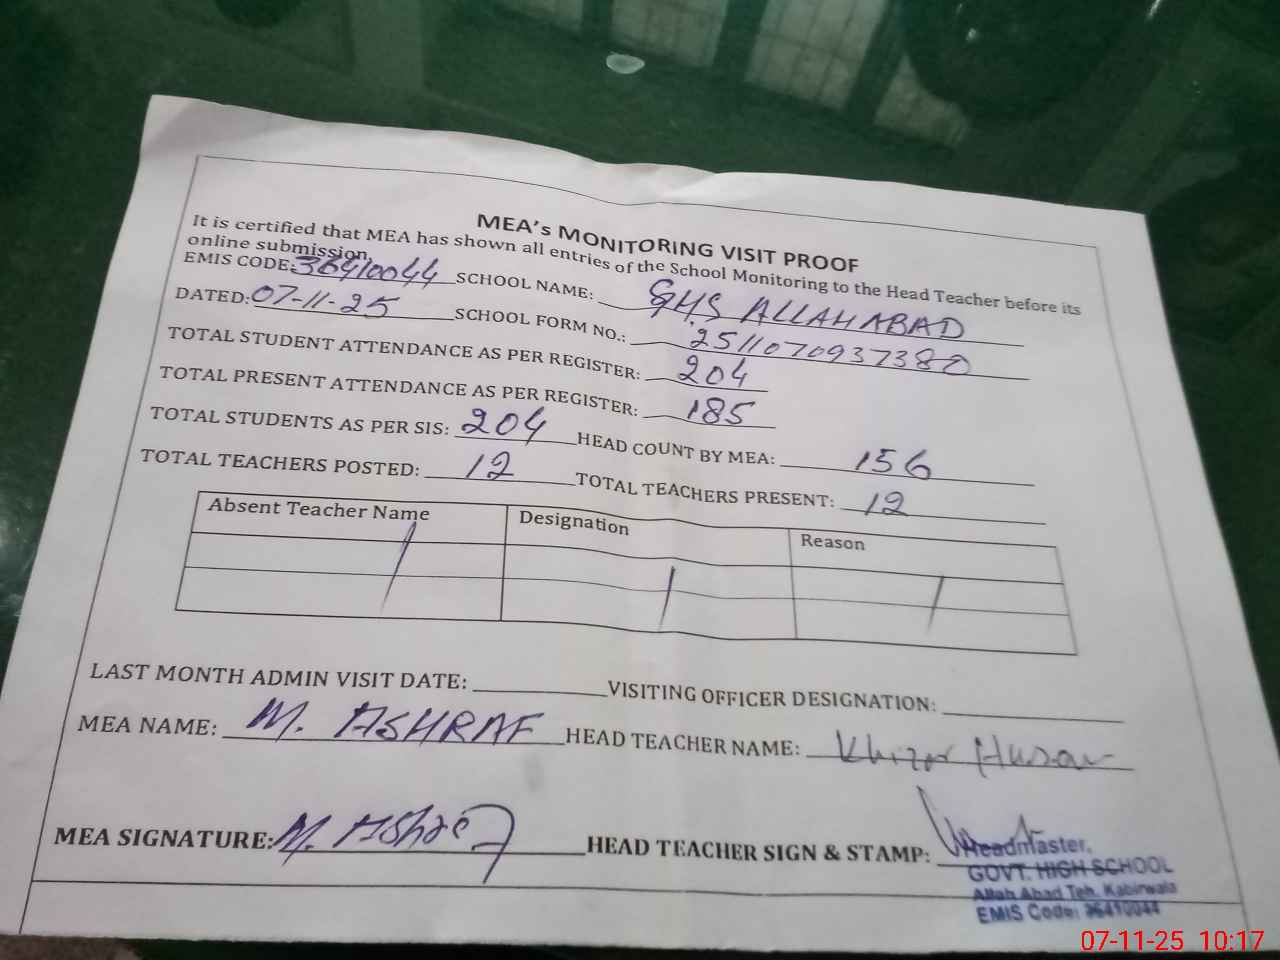 MEA's MONITORING VISIT PROOF
It is certified that MEA has shown all entries of the School Monitoring to the Head Teacher before its
online submission.
EMIS CODE: 36410044 SCHOOL NAME: GHS ALLAHABAD
DATED: 07-11-25 SCHOOL FORM NO.: 2511070937380
TOTAL STUDENT ATTENDANCE AS PER REGISTER: 204
TOTAL PRESENT ATTENDANCE AS PER REGISTER: 185
TOTAL STUDENTS AS PER SIS: 204 HEAD COUNT BY MEA: 156
TOTAL TEACHERS POSTED: 12 TOTAL TEACHERS PRESENT: 12
Absent Teacher Name Designation Reason
LAST MONTH ADMIN VISIT DATE: VISITING OFFICER DESIGNATION:
MEA NAME: M. ASHRAF HEAD TEACHER NAME: Khizar
MEA SIGNATURE: M. HEAD TEACHER SIGN & STAMP:
Headmaster,
GOVT. HIGH SCHOOL
Allah Abad Teh. Kabirwala
EMIS Code: 36410044
07-11-25 10:17